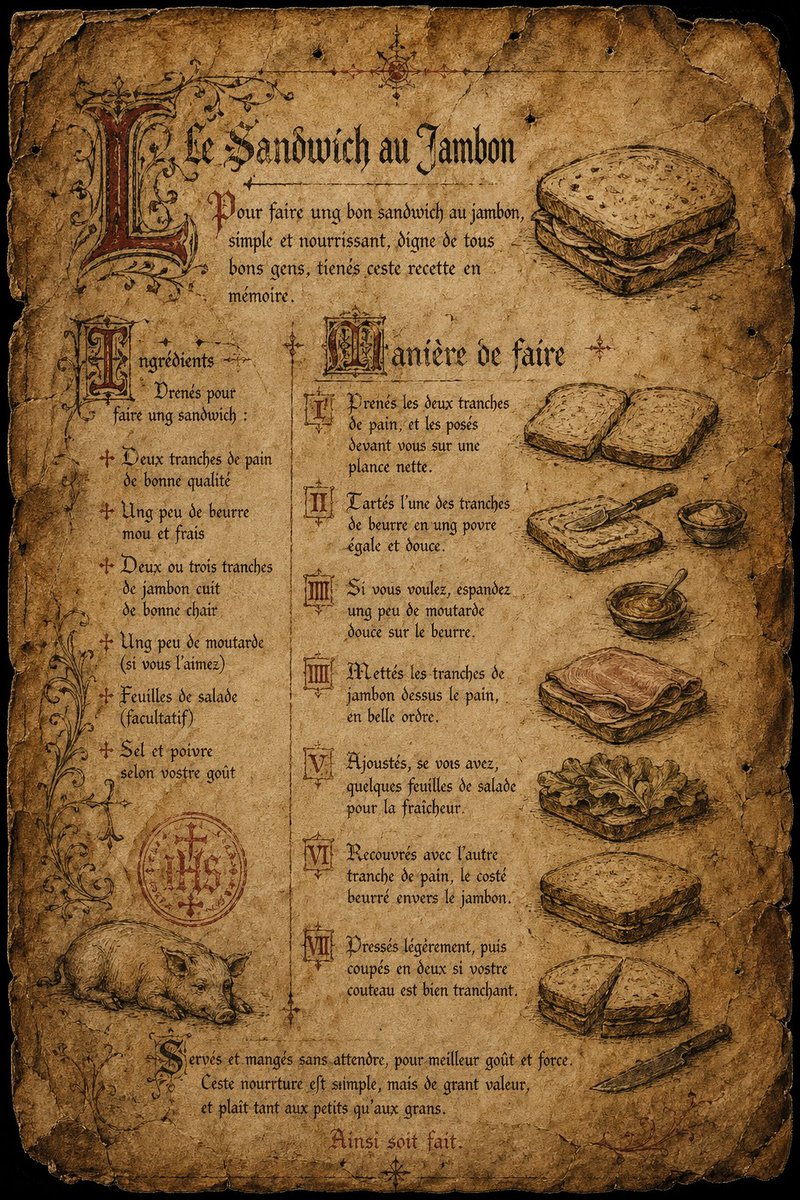 L
Le Sandwich au Jambon
Pour faire ung bon sandwich au jambon,
simple et nourrissant, digne de tous
bons gens, tienés ceste recette en
mémoire.
Ingrédients
Prenés pour
faire ung sandwich :
Deux tranches de pain
de bonne qualité
Ung peu de beurre
mou et frais
Deux ou trois tranches
de jambon cuit
de bonne chair
Ung peu de moutarde
(si vous l'aimez)
Feuilles de salade
(facultatif)
Sel et poivre
selon vostre goût
IHS
Manière de faire
I Prenés les deux tranches
de pain, et les posés
devant vous sur une
plance nette.
II Tartés l'une des tranches
de beurre en ung povre
égale et douce.
IIII Si vous voulez, espandez
ung peu de moutarde
douce sur le beurre.
IIII Mettés les tranches de
jambon dessus le pain,
en belle ordre.
V Ajoustés, se vois avez,
quelques feuilles de salade
pour la fraîcheur.
VI Recouvrés avec l'autre
tranche de pain, le costé
beurré envers le jambon.
VII Pressés légérement, puis
coupés en deux si vostre
couteau est bien tranchant.
Servés et mangés sans attendre, pour meilleur goût et force.
Ceste nourrture est siimple, mais de grant valeur,
et plaît tant aux petits qu'aux grans.
Ainsi soit fait.